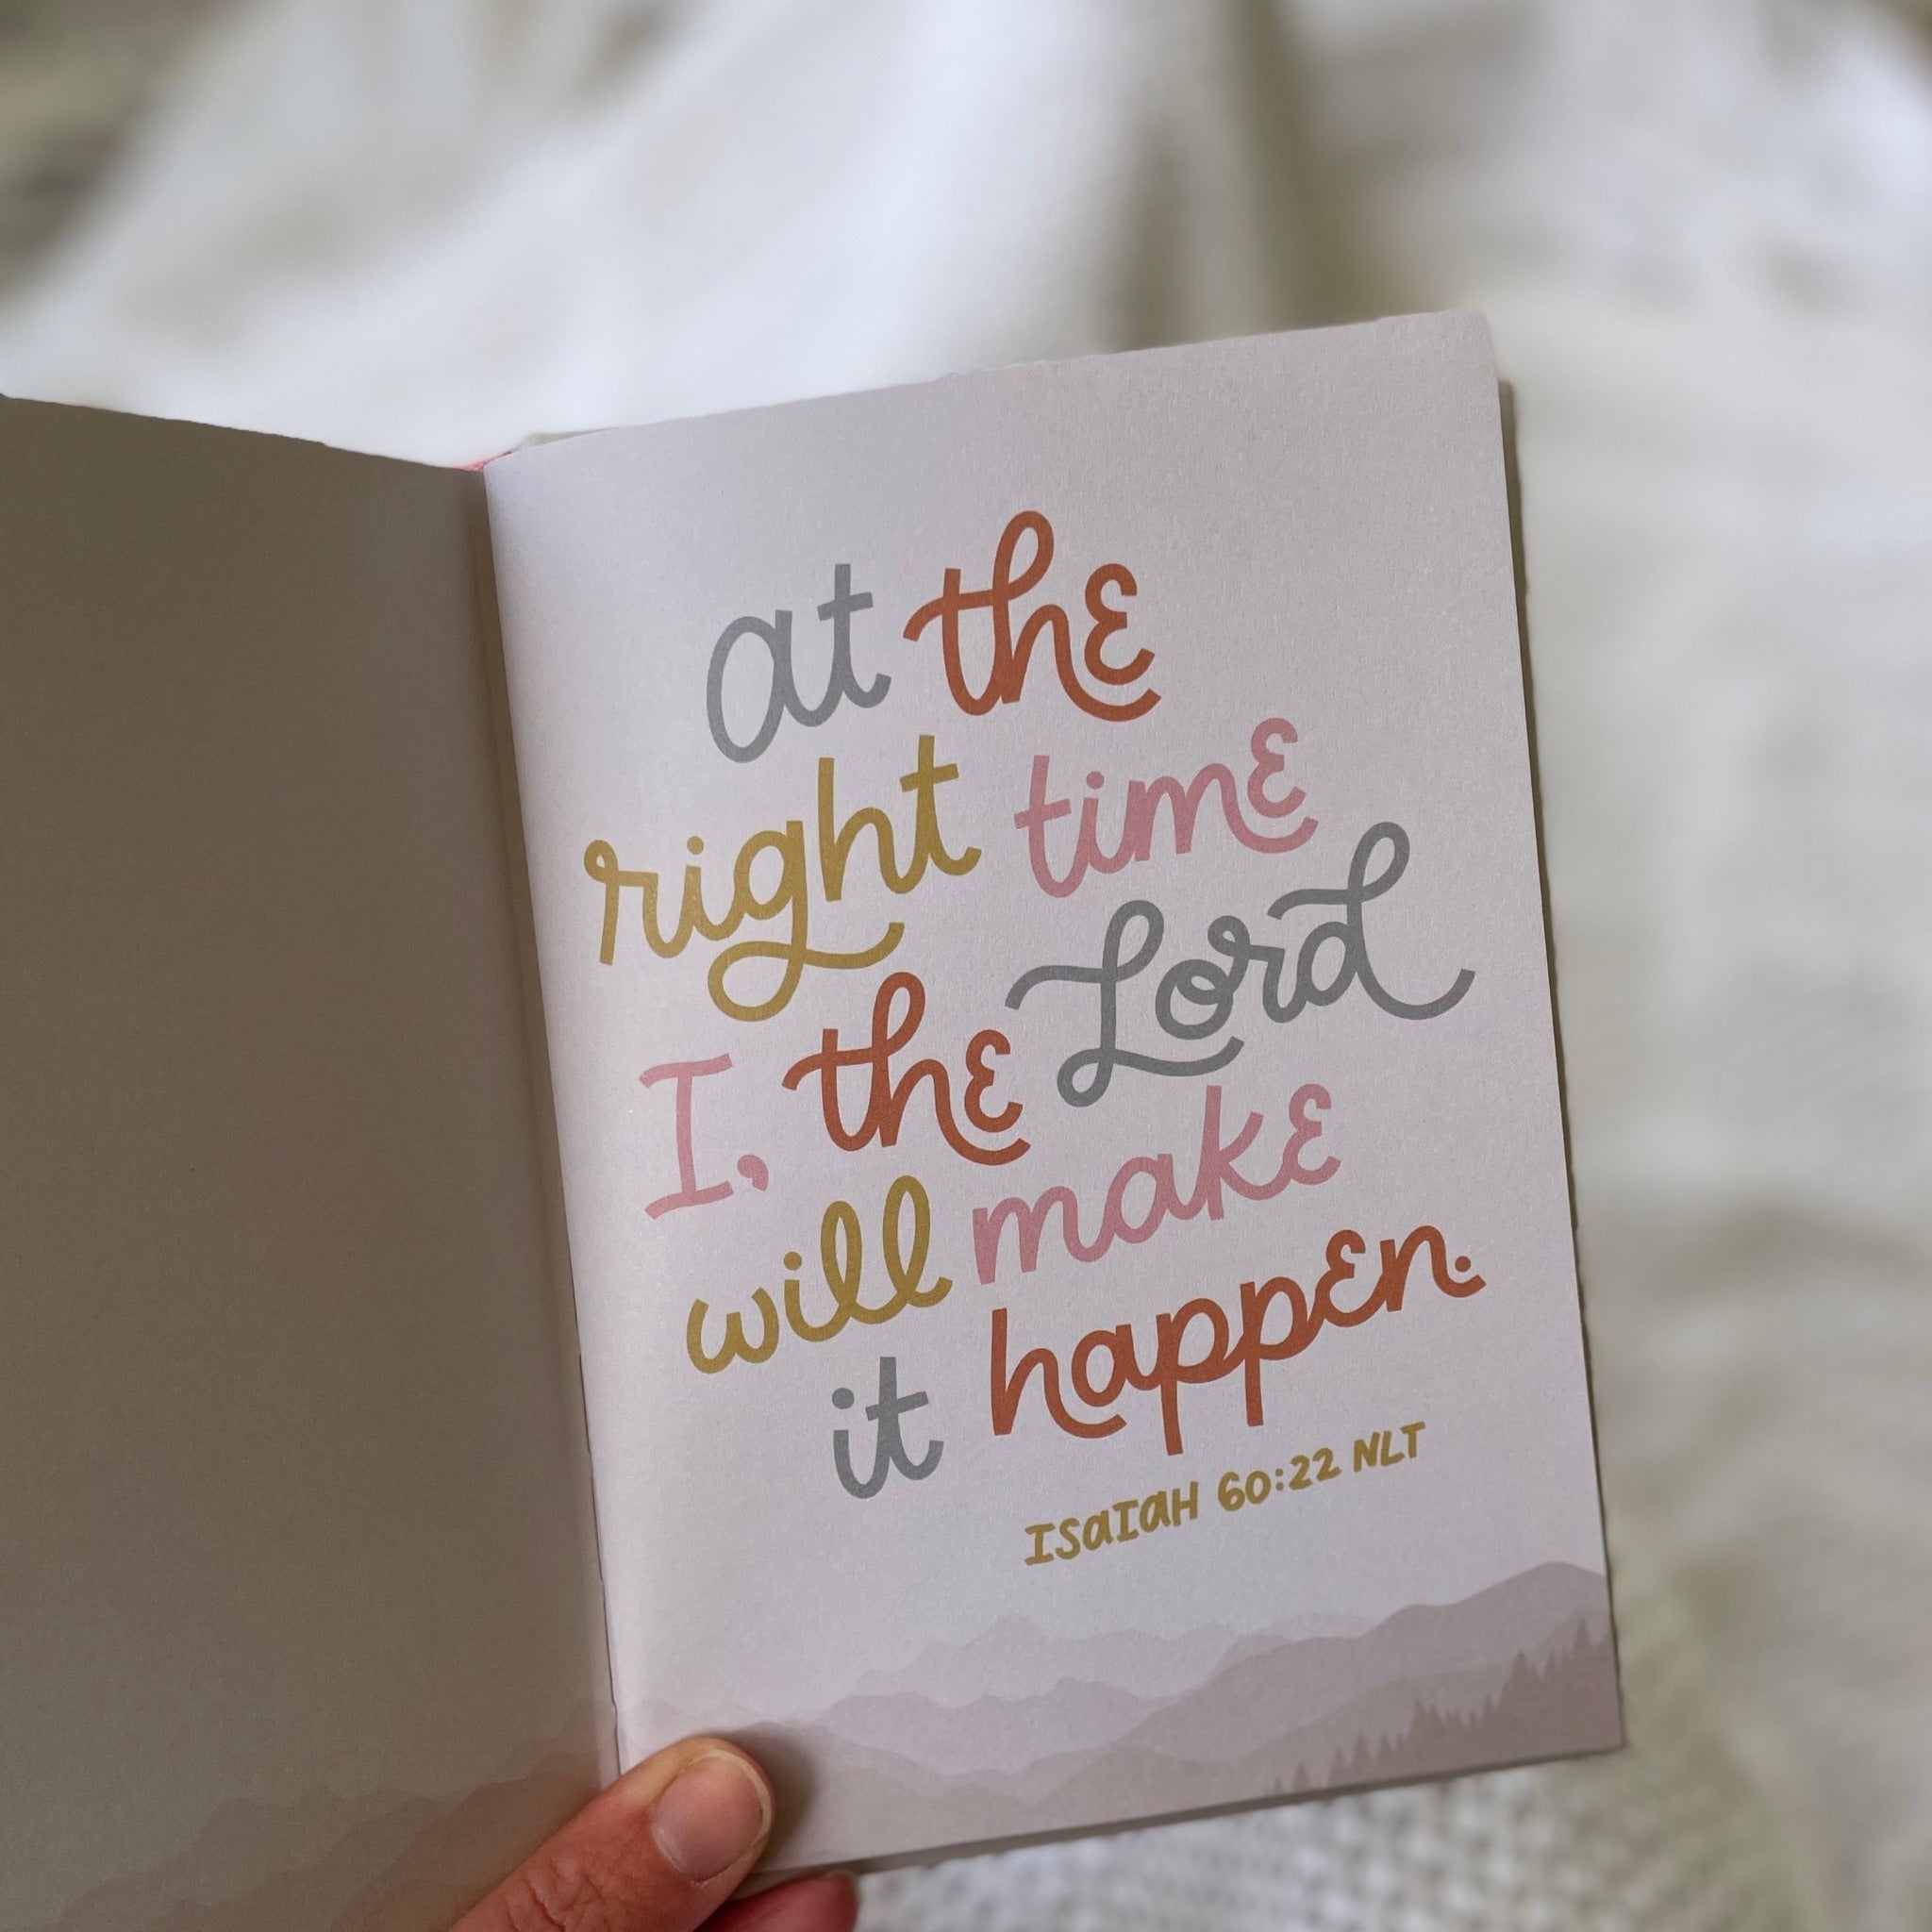 at the
right time
I, the Lord
will make
it happen.
ISaIaH 60:22 NLT